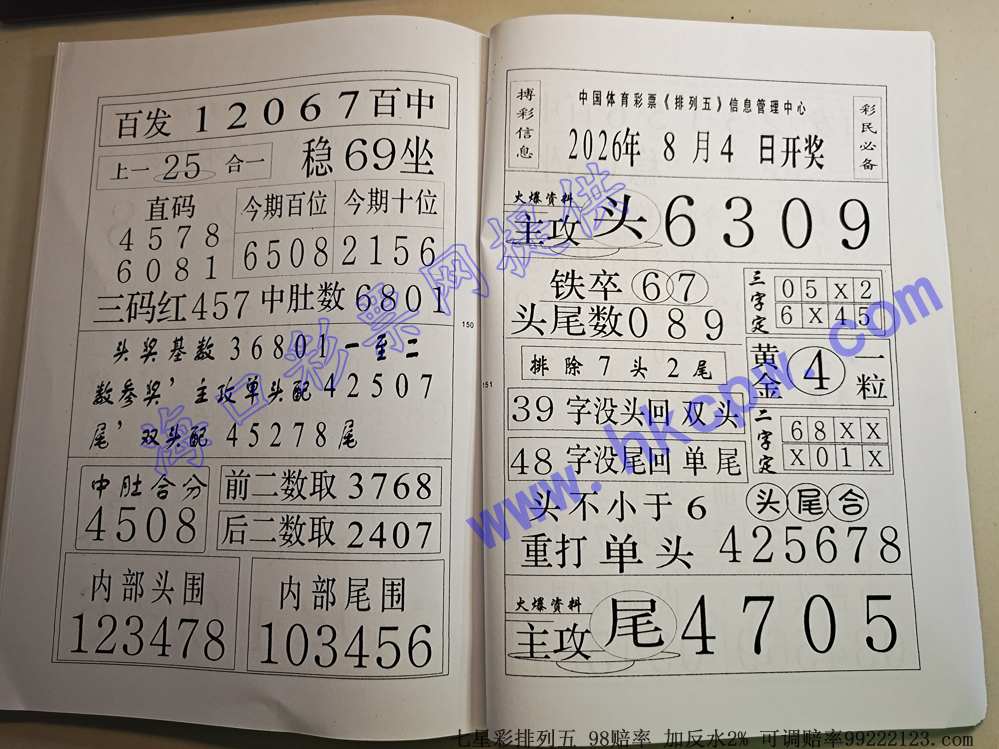 百发 12067 百中
上一 25 合一 稳 69 坐
直码
4578
6081
今期百位 今期十位
6508 2156
三码红457 中肚数6801
头奖基数36801一至二
数参奖,主攻单头配42507
尾,双头配45278尾
中肚合分
4508
前二数取3768
后二数取2407
内部头围
123478
内部尾围
103456
150
151
搏彩信息
中国体育彩票《排列五》信息管理中心
2026年 8月4 日开奖
彩民必备
火爆资料
主攻 头 6309
铁卒 67
头尾数089
三字定
05X2
6X45
排除7头2尾
黄金 4 一粒
39字没头回双头
48字没尾回单尾
二字定
68XX
X01X
头不小于6
头尾合
重打单头425678
火爆资料
主攻 尾 4705
海口彩票网提供
www.hkcpw.com
七星彩排列五 98赔率 加反水2% 可调赔率99222123.com